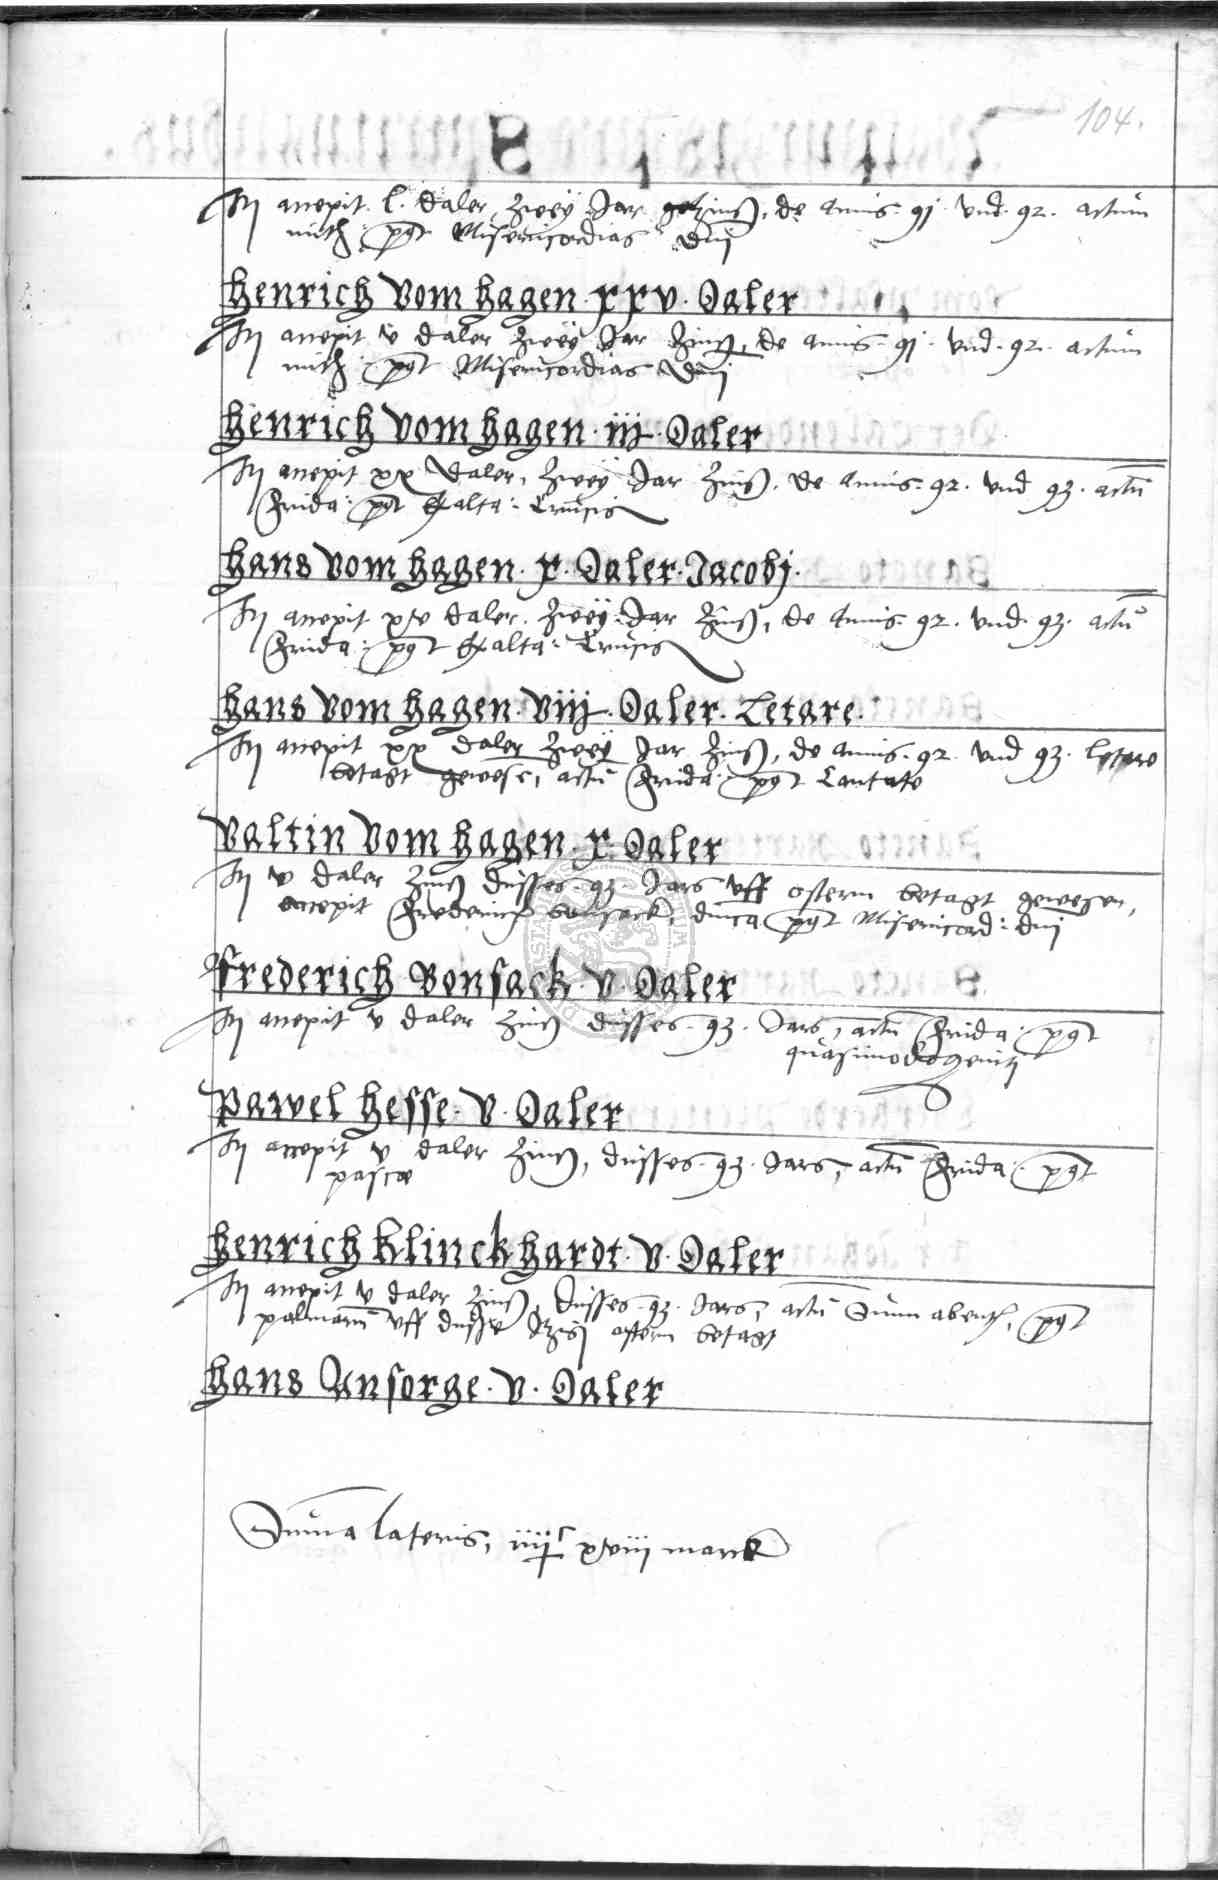 104.
accepit l. daler, zwey Jar gelt zinß, de Annis. 91. vnd. 92. actum
mitt. post Misericordias Dnj
Henrich Vom Hagen. xxv. Daler
accepit v daler zwey Jar zinß, de annis. 91. vnd. 92. actum
mitt. post Misericordias Dnj
Henrich Vom Hagen. iij. Daler
accepit xx Daler, zwey Jar zinß. de Annis. 92. vnd 93. actu
Frida: post Exalta: Crucis
Hans Vom Hagen. x. Daler. Jacobj.
accepit xv daler. zwey Jar zinß, de Annis. 92. vnd. 93. actu
Frida: post Exalta: Crucis
Hans Vom Hagen. viij. Daler. Letare.
accepit xx daler zwey Jar zinß, de Annis. 92. vnd 93. letare
betagt gewese, actu Frida: post Cantate
Valtin Vom Hagen. x. Daler
v daler zinß dusses. 93. Jars vff ostern betagt gewesen,
accepit Frederich bonsack, post Misericord: dnj
Frederich Bonsack. v. Daler
accepit v daler zinß dusses. 93. Jars, actu Frida: post
quasimodogenitj
Pawel Hesse. v. Daler
accepit v daler zinß, dusses. 93. Jars, actu Frida: post
pascæ
Henrich Klinckhardt. v. Daler
accepit v daler zinß, dusses. 93. Jars, actu Sunnabent, post
palmaru vff dusse ostern betagt
Hans Ansorge. v. Daler
Suma lateris, xviii marck